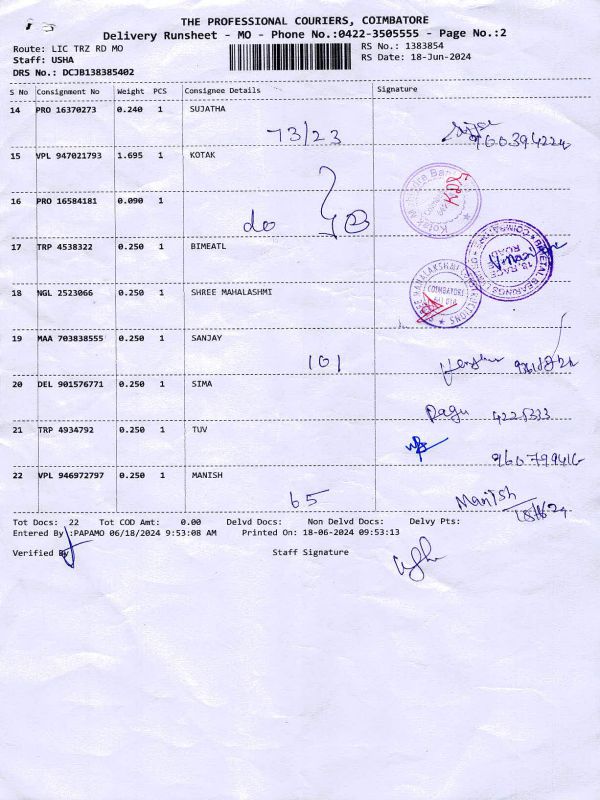 THE PROFESSIONAL COURIERS, COIMBATORE
Delivery Runsheet - MO - Phone No.:0422-3505555 - Page No.:2
Route: LIC TRZ RD MO
RS No.: 1383854
Staff: USHA
RS Date: 18-Jun-2024
DRS No.: DCJB138385402
S No Consignment No Weight PCS Consignee Details Signature
14 PRO 16370273 0.240 1 SUJATHA
73/23
15 VPL 947021793 1.695 1 KOTAK
16 PRO 16584181 0.090 1
do
17 TRP 4538322 0.250 1 BIMEATL
18 NGL 2523066 0.250 1 SHREE MAHALASHMI
19 MAA 703838555 0.250 1 SANJAY
101
20 DEL 901576771 0.250 1 SIMA
Ragu
21 TRP 4934792 0.250 1 TUV
22 VPL 946972797 0.250 1 MANISH
65 Manish
Tot Docs: 22 Tot COD Amt: 0.00 Delvd Docs: Non Delvd Docs: Delvy Pts:
Entered By:PAPAMO 06/18/2024 9:53:08 AM Printed On: 18-06-2024 09:53:13
Verified By Staff Signature